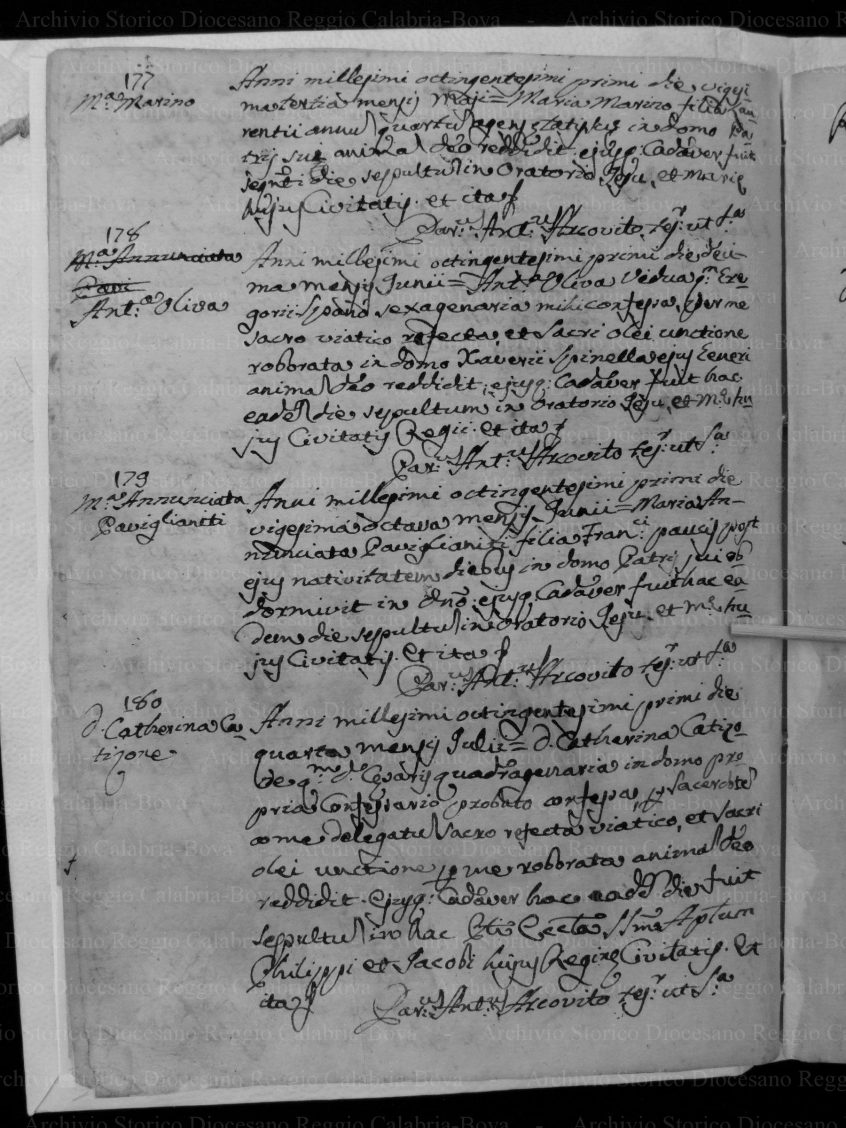 177
M.ª Marino
Anni millesimi octingentesimi primi die vigesi
ma tertia mensis Maji = Maria Marino filia Lau
rentii annu quartu agens ętatis suę in domo Pa
tris sui animã Deo reddidit. ejusq. Cadaver fuit
seqnti die sepultu in Oratorio Jesu, et Marię
hujus Civitatis. et ita
Par.s Ant.s Arcovito
178
M.ª Annunciata
Pavi
Ant.ª Oliva
Anni millesimi octingentesimi primi die deci
ma mensis Junii = Ant.ª Oliva Vedua q.m Gre
gorii Spanò sexagenaria mihi confessa, per me
sacro viatico refecta, et Sacri olei unctione
roborata in domo Xaverii Spinella ejus Generi
anima Deo reddidit, ejusq. Cadaver fuit hac
eadẽ die sepultum in Oratorio Jesu, et M.ę hu
jus Civitatis Regii. et ita
Par.s Ant.s Arcovito
179
M.ª Annunciata
Paviglianiti
Anni millesimi octingentesimi primi die
vigesima octava mensis Junii = Maria An-
nunciata Paviglianiti filia Fran.ci paucis post
ejus nativitatem diebus in domo Patris sui ob
dormivit in Dño: ejusq. Cadaver fuit hac ea
dem die sepultu in Oratorio Jesu, et M.ę hu
jus Civitatis. et ita
Par.s Ant.s Arcovito
180
D. Catherina Ca
tizone
Anni millesimi octingentesimi primi die
quarta mensis Julii = D. Catherina Catizo
ne q.m D. Cęsaris quadragenaria in domo pro
pria Confessario probato confessa, p Sacerdote
a me delegatu sacro refecta viatico, et sacri
olei unctione p me roborata anima Deo
reddidit. Ejusq. Cadaver hac eadẽ die fuit
sepultu in hac Eccla SSm Aplum
Philippi et Jacobi hujus Reginę Civitatis. Et
ita
Par.s Ant.s Arcovito
Archivio Storico Diocesano Reggio Calabria-Bova